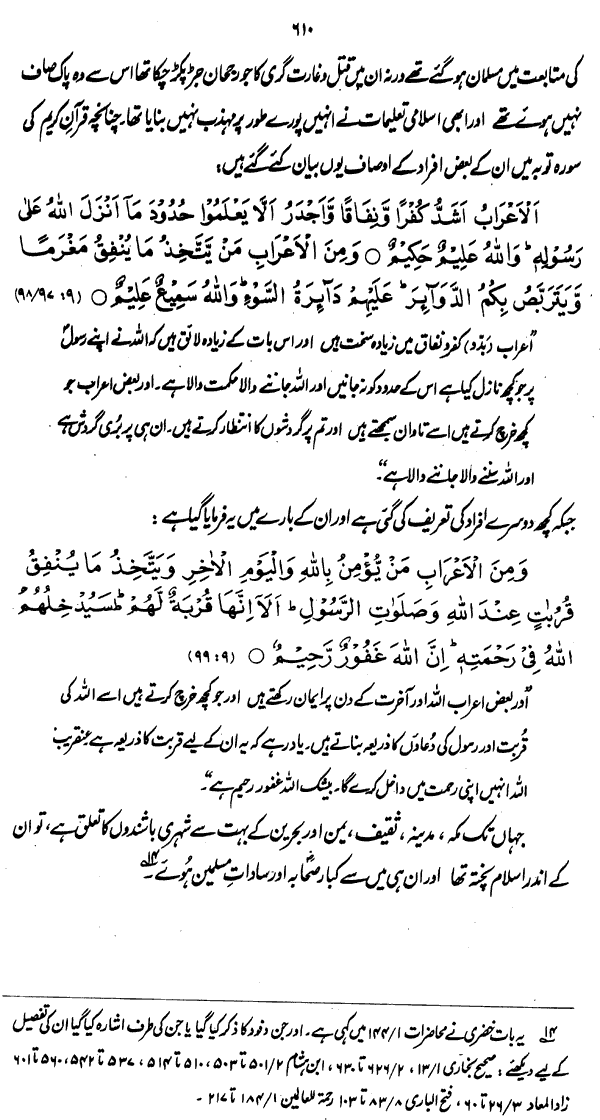 ۶۱۰
کی متابعت میں مسلمان ہو گئے تھے ورنہ ان میں قتل و غارت گری کا جو رجحان جڑ پکڑ چکا تھا اس سے وہ پاک صاف
نہیں ہوئے تھے اور ابھی اسلامی تعلیمات نے انہیں پورے طور پر مہذب نہیں بنایا تھا۔ چنانچہ قرآن کریم کی
سورہ توبہ میں ان کے بعض افراد کے اوصاف یوں بیان کئے گئے ہیں:
اَلْاَعْرَابُ اَشَدُّ كُفْرًا وَّنِفَاقًا وَّاَجْدَرُ اَلَّا يَعْلَمُوْا حُدُوْدَ مَآ اَنْزَلَ اللّٰهُ عَلٰى
رَسُوْلِهٖ ؕ وَاللّٰهُ عَلِيْمٌ حَكِيْمٌ ○ وَمِنَ الْاَعْرَابِ مَنْ يَّتَّخِذُ مَا يُنْفِقُ مَغْرَمًا
وَّيَتَرَبَّصُ بِكُمُ الدَّوَآئِرَ ؕ عَلَيْهِمْ دَآئِرَةُ السَّوْءِ ؕ وَاللّٰهُ سَمِيْعٌ عَلِيْمٌ ○ (۹: ۹۷/۹۸)
"اَعراب (بَدّو) کفر و نفاق میں زیادہ سخت ہیں اور اس بات کے زیادہ لائق ہیں کہ اللہ نے اپنے رسولؐ
پر جو کچھ نازل کیا ہے اس کے حدود کو نہ جانیں اور اللہ جاننے والا حکمت والا ہے۔ اور بعض اعراب جو
کچھ خرچ کرتے ہیں اسے تاوان سمجھتے ہیں اور تم پر گردشوں کا انتظار کرتے ہیں۔ ان ہی پر بُری گردش ہے
اور اللہ سننے والا جاننے والا ہے"۔
جبکہ کچھ دوسرے افراد کی تعریف کی گئی ہے اور ان کے بارے میں یہ فرمایا گیا ہے:
وَمِنَ الْاَعْرَابِ مَنْ يُّؤْمِنُ بِاللّٰهِ وَالْيَوْمِ الْاٰخِرِ وَيَتَّخِذُ مَا يُنْفِقُ
قُرُبٰتٍ عِنْدَ اللّٰهِ وَصَلَوٰتِ الرَّسُوْلِ ؕ اَلَآ اِنَّهَا قُرْبَةٌ لَّهُمْ ؕ سَيُدْخِلُهُمُ
اللّٰهُ فِيْ رَحْمَتِهٖ ؕ اِنَّ اللّٰهَ غَفُوْرٌ رَّحِيْمٌ ○ (۹: ۹۹)
"اور بعض اعراب اللہ اور آخرت کے دن پر ایمان رکھتے ہیں اور جو کچھ خرچ کرتے ہیں اسے اللہ کی
قُربت اور رسول کی دُعاؤں کا ذریعہ بناتے ہیں۔ یاد رہے کہ یہ ان کے لیے قربت کا ذریعہ ہے عنقریب
اللہ انہیں اپنی رحمت میں داخل کرے گا۔ بیشک اللہ غفور رحیم ہے"۔
جہاں تک مکہ، مدینہ، ثقیف، یمن اور بحرین کے بہت سے شہری باشندوں کا تعلق ہے، تو ان
کے اندر اسلام پختہ تھا اور ان ہی میں سے کبار صحابہؓ اور ساداتِ مسلمین ہُوئے۔ ۱۴
۱۴ یہ بات خضری نے محاضرات ۱/۱۴۴ میں کہی ہے۔ اور جن وفود کا ذکر کیا گیا یا جن کی طرف اشارہ کیا گیا ان کی تفصیل
کے لیے دیکھئے: صحیح بخاری ۱/۱۳، ۲/۶۲۶ تا ۶۳۰، ابن ہشام ۲/۵۰۱ تا ۵۰۳، ۵۱۰ تا ۵۱۴، ۵۳۷ تا ۵۴۲، ۵۶۰ تا ۶۰۱
زاد المعاد ۳/۲۶ تا ۶۰، فتح الباری ۸/۸۳ تا ۱۰۳ رحمۃ للعالمین ۱/۱۸۴ تا ۲۱۷۔